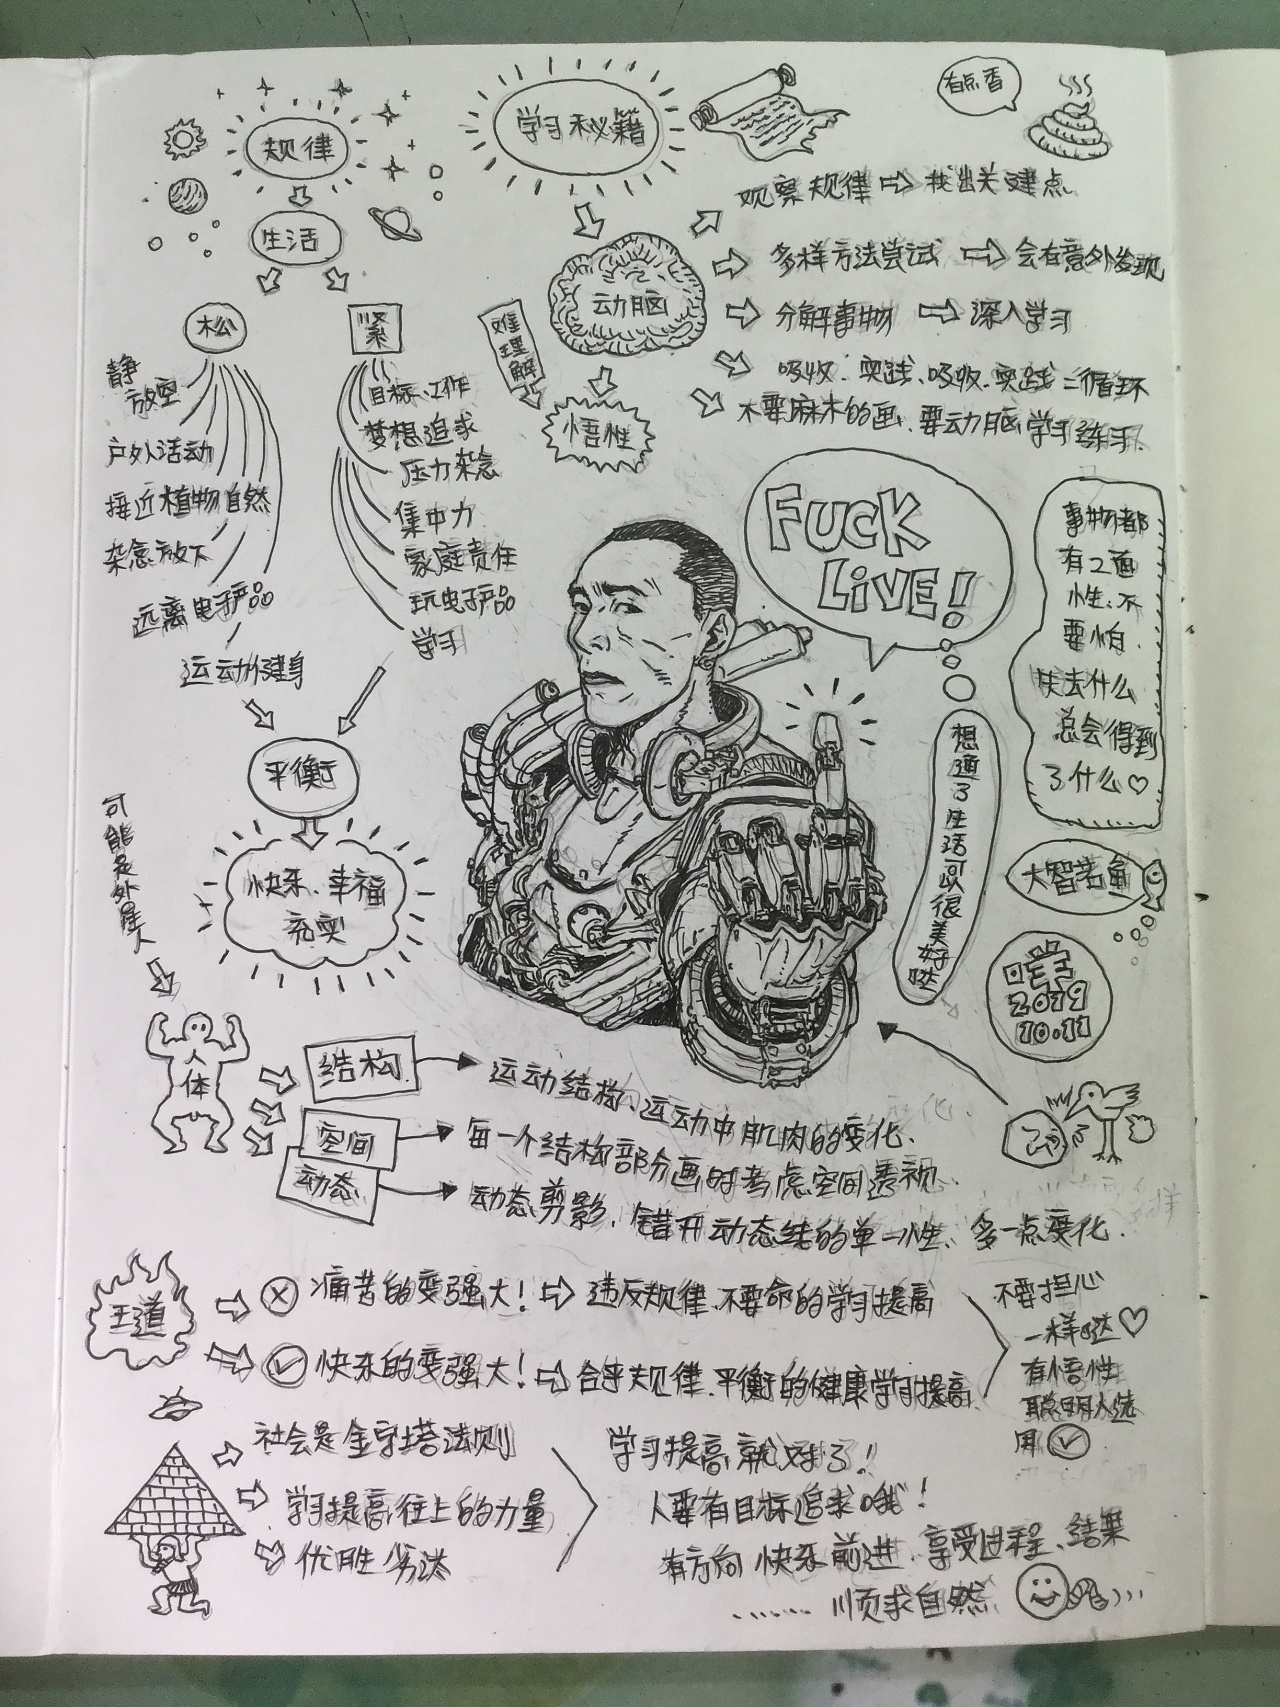 规律
生活
松
静
放空
户外活动
接近植物自然
杂念放下
远离电子产品
运动健身
紧
目标、工作
梦想追求
压力杂念
集中力
家庭责任
玩电子产品
学习
平衡
快乐、幸福
充实
学习秘籍
动脑
难理解
悟性
有点香
观察规律 找出关键点
多样方法尝试 会有意外发现
分解事物 深入学习
吸收、实践、吸收、实践 二循环
不要麻木的画、要动脑学习练手、
FUCK
LiVE!
想通了生活可以很美好哒
事物都
有2面
性、不
要怕、
失去什么
总会得到
了什么
大智若鱼
2019
10.11
可能是外星人
人体
结构 运动结构、运动中肌肉的变化、
空间 每一个结构部分画时考虑空间透视、
动态 动态剪影、错开动态线的单一性、多一点变化、
王道
痛苦的变强大! 违反规律、不要命的学习提高
快乐的变强大! 合乎规律、平衡的健康学习提高
不要担心
一样哒
有悟性
聪明人选
用
社会是金字塔法则
学习提高往上的力量
优胜劣汰
学习提高就对了!
人要有目标追求哦!
有方向快乐前进、享受过程、结果
........顺求自然